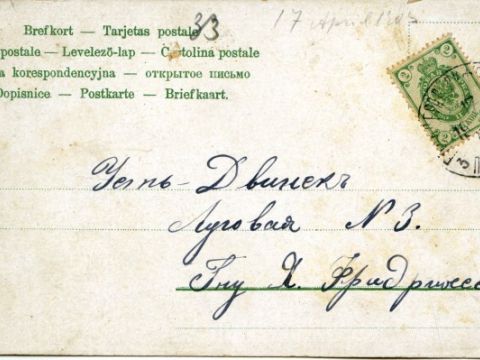 33 17 April
Brefkort — Tarjetas postale
postale — Levelező-lap — Cartolina postale
a korespondencyjna — открытое письмо
Dopisnice — Postkarte — Briefkaart.
2 2
2 2
Усть-Двинскъ
Луговая № 3.
Гну Я. Фридрихсо